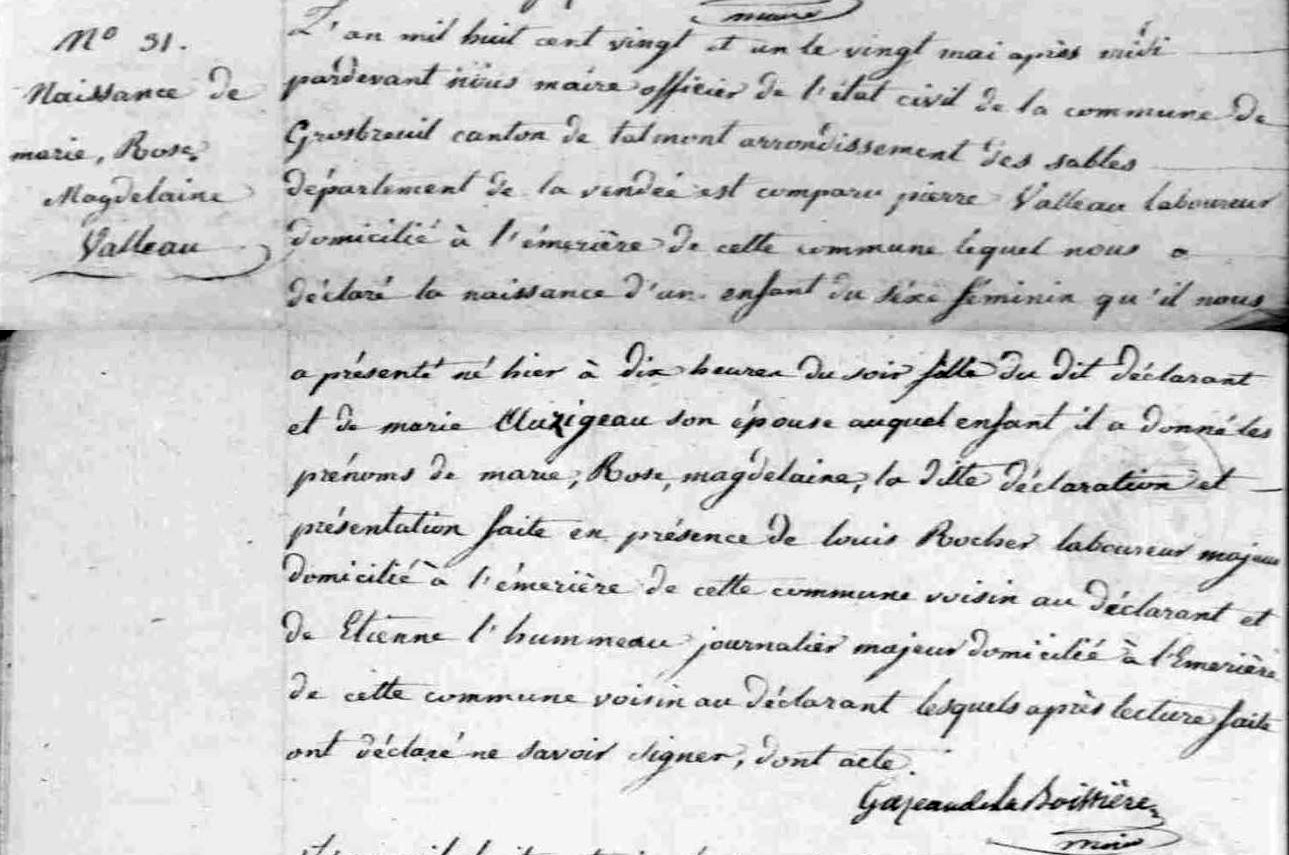 maire
N° 31.
Naissance de
marie, Rose,
Magdelaine
Valleau
L'an mil huit cent vingt et un le vingt mai après midi
pardevant nous maire officier de l'état civil de la commune de
Grosbreuil canton de talmont arrondissement des sables
département de la vendée est comparu pierre Valleau laboureur
domicilié à l'émerière de cette commune lequel nous a
déclaré la naissance d'un enfant du séxe féminin qu'il nous
a présenté né hier à dix heures du soir fille du dit déclarant
et de marie Auzigeau son épouse auquel enfant il a donné les
prénoms de marie, Rose, magdelaine, la ditte déclaration et
présentation faite en présence de louis Rocher laboureur majeur
domicilié à l'émerière de cette commune voisin au déclarant et
de Etienne l'hummeau journalier majeur domicilié à l'Emerière
de cette commune voisin au déclarant lesquels après lecture faite
ont déclaré ne savoir signer, dont acte.
Gajeaudela Boissière
maire